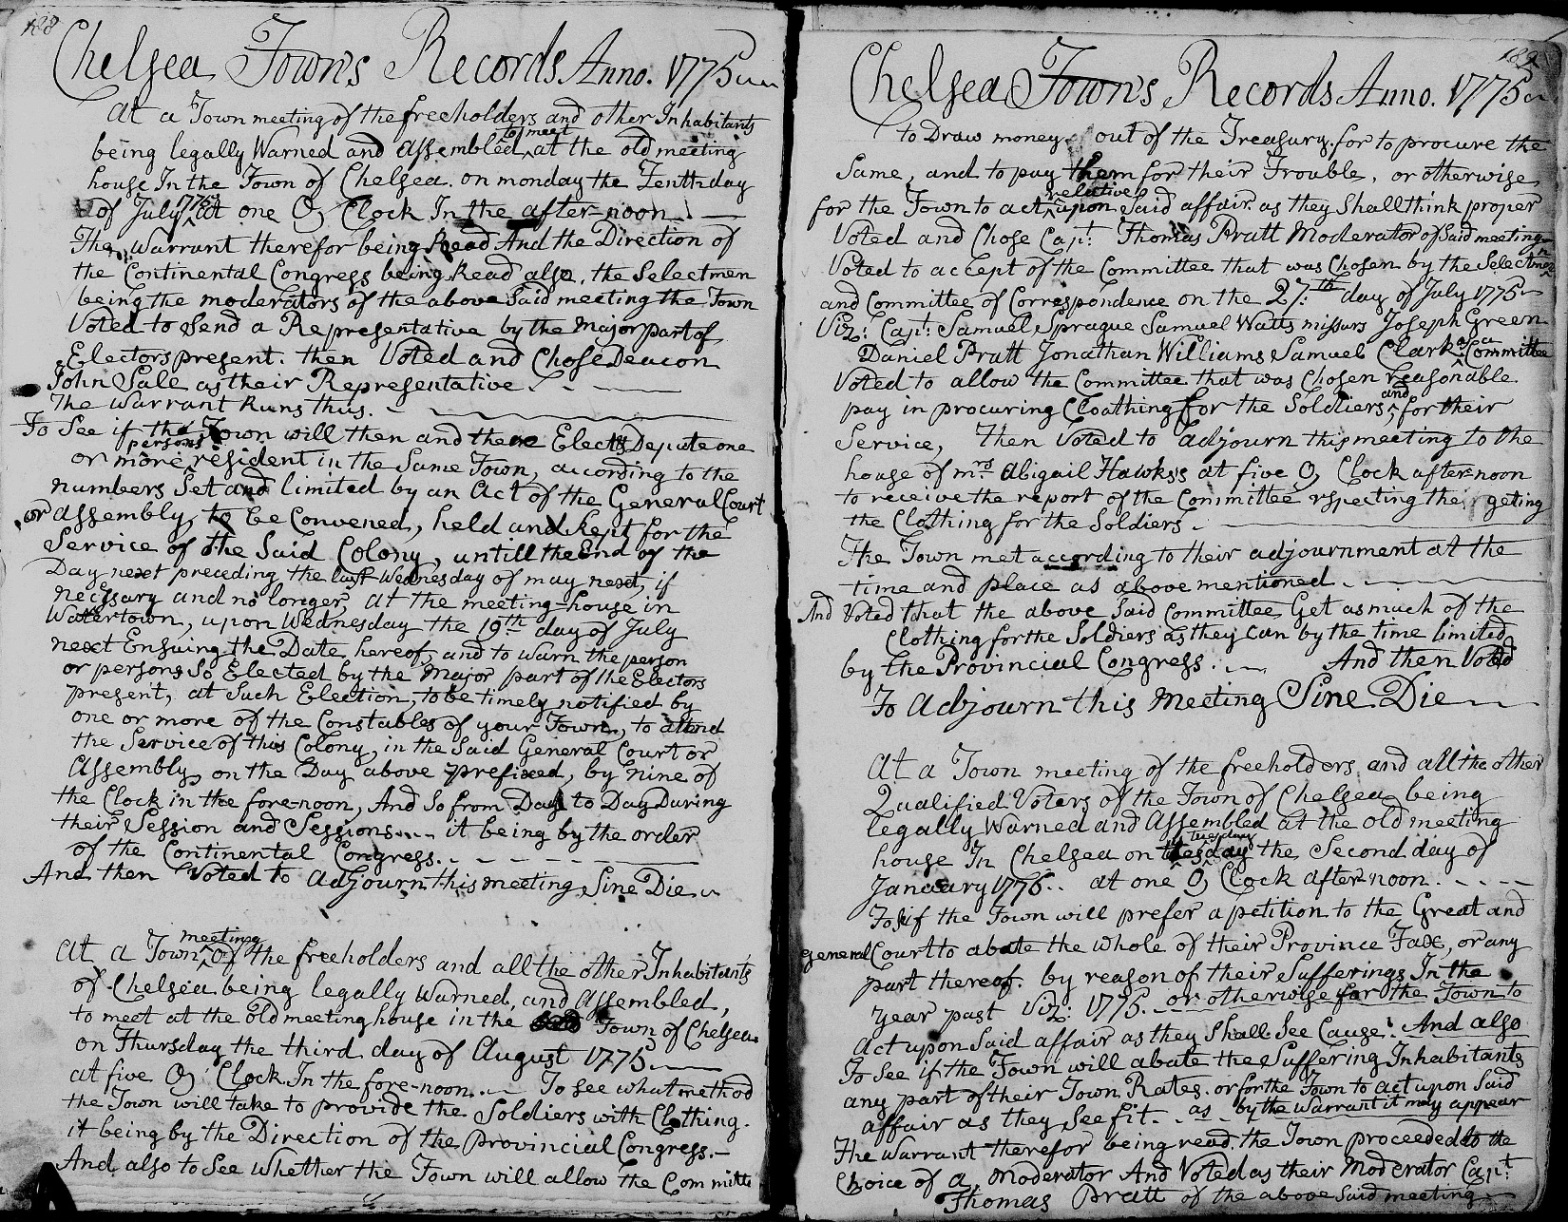 188
Chelsea Town's Records Anno. 1775
At a Town meeting of the freeholders and other Inhabitants
being legally Warned and assembled to meet at the old meeting
house In the Town of Chelsea. on monday the Tenth day
of July 1775 at one O Clock In the after-noon
The Warrant therefor being Read And the Direction of
the Continental Congress being Read also, the Selectmen
being the moderators of the above Said meeting the Town
Voted to Send a Representative by the Major part of
Electors present. then Voted and Chose Deacon
John Sale as their Representative
The Warrant Runs thus.
To See if the Town will then and there Elect & Depute one
or more persons resident in the Same Town, according to the
numbers Set and limited by an Act of the General Court
or assembly, to be Convened, held and kept for the
Service of the Said Colony, untill the End of the
Day next preceding the last Wednesday of may next, if
necessary and no longer, at the meeting-house in
Watertown, upon Wednesday the 19th day of July
next Ensuing the Date hereof, and to warn the person
or persons So Elected by the Major part of the Electors
present, at Such Election, to be timely notified by
one or more of the Constables of your Town, to attend
the Service of this Colony, in the Said General Court or
Assembly, on the Day above prefixed, by nine of
the Clock in the fore-noon, And So from Day to Day During
their Session and Sessions it being by the order
of the Continental Congress.
And then Voted to adjourn this meeting Sine Die
At a Town meeting of the freeholders and all the other Inhabitants
of Chelsea being legally Warned, and assembled,
to meet at the Old meeting house in the Town of Chelsea
on Thursday the third day of August 1775
at five O Clock In the fore-noon. To see what method
the Town will take to provide the Soldiers with Clothing.
it being by the Direction of the Provincial Congress.
And also to See whether the Town will allow the Committe
189
Chelsea Town's Records Anno. 1775
to Draw money out of the Treasury, for to procure the
Same, and to pay them for their Trouble, or otherwise
for the Town to act relative upon Said affair. as they Shall think proper
Voted and Chose Capt: Thomas Pratt Moderator of Said meeting
Voted to accept of the Committee that was Chosen by the Selectmen
and Committee of Correspondence on the 27:th day of July 1775
Viz: Capt: Samuel Sprague Samuel Watts missurs Joseph Green
Daniel Pratt Jonathan Williams Samuel Clark as a Committee
Voted to allow the Committee that was Chosen reasonable
pay in procuring Cloathing for the Soldiers, and for their
Service, Then Voted to adjourn this meeting to the
house of mrs Abigail Hawks's at five O Clock after-noon
to receive the report of the Committee rspecting the geting
the Clothing for the Soldiers.
The Town met according to their adjournment at the
time and place as above mentioned
And Voted that the above Said Committee Get as much of the
Clothing for the Soldiers as they Can by the time limited
by the Provincial Congress. And then Voted
To Adjourn this Meeting Sine Die
At a Town meeting of the freeholders and all the other
Qualified Voters of the Town of Chelsea being
legally Warned and Assembled at the old meeting
house In Chelsea on tuesday the Second day of
January 1776. at one O Clock after-noon.
To if the Town will prefer a petition to the Great and
general Court to abate the whole of their Province Tax, or any
part thereof. by reason of their Sufferings In the
year past Viz: 1775. or otherwise for the Town to
act upon Said affair as they Shall See Cause. And also
To See if the Town will abate the Suffering Inhabitants
any part of their Town Rates. or for the Town to act upon Said
affair as they See fit. as by the warrant it may appear
The Warrant therefor being read the Town proceeded to the
Choice of a Moderator And Voted as their Moderator Capt:
Thomas Pratt of the above Said meeting